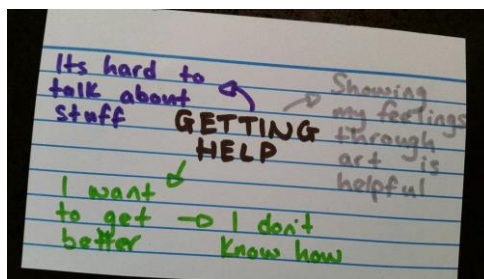 Its hard to
talk about
stuff
GETTING
HELP
Showing
my feelings
through
art is
helpful
I want
to get
better
I don't
know how